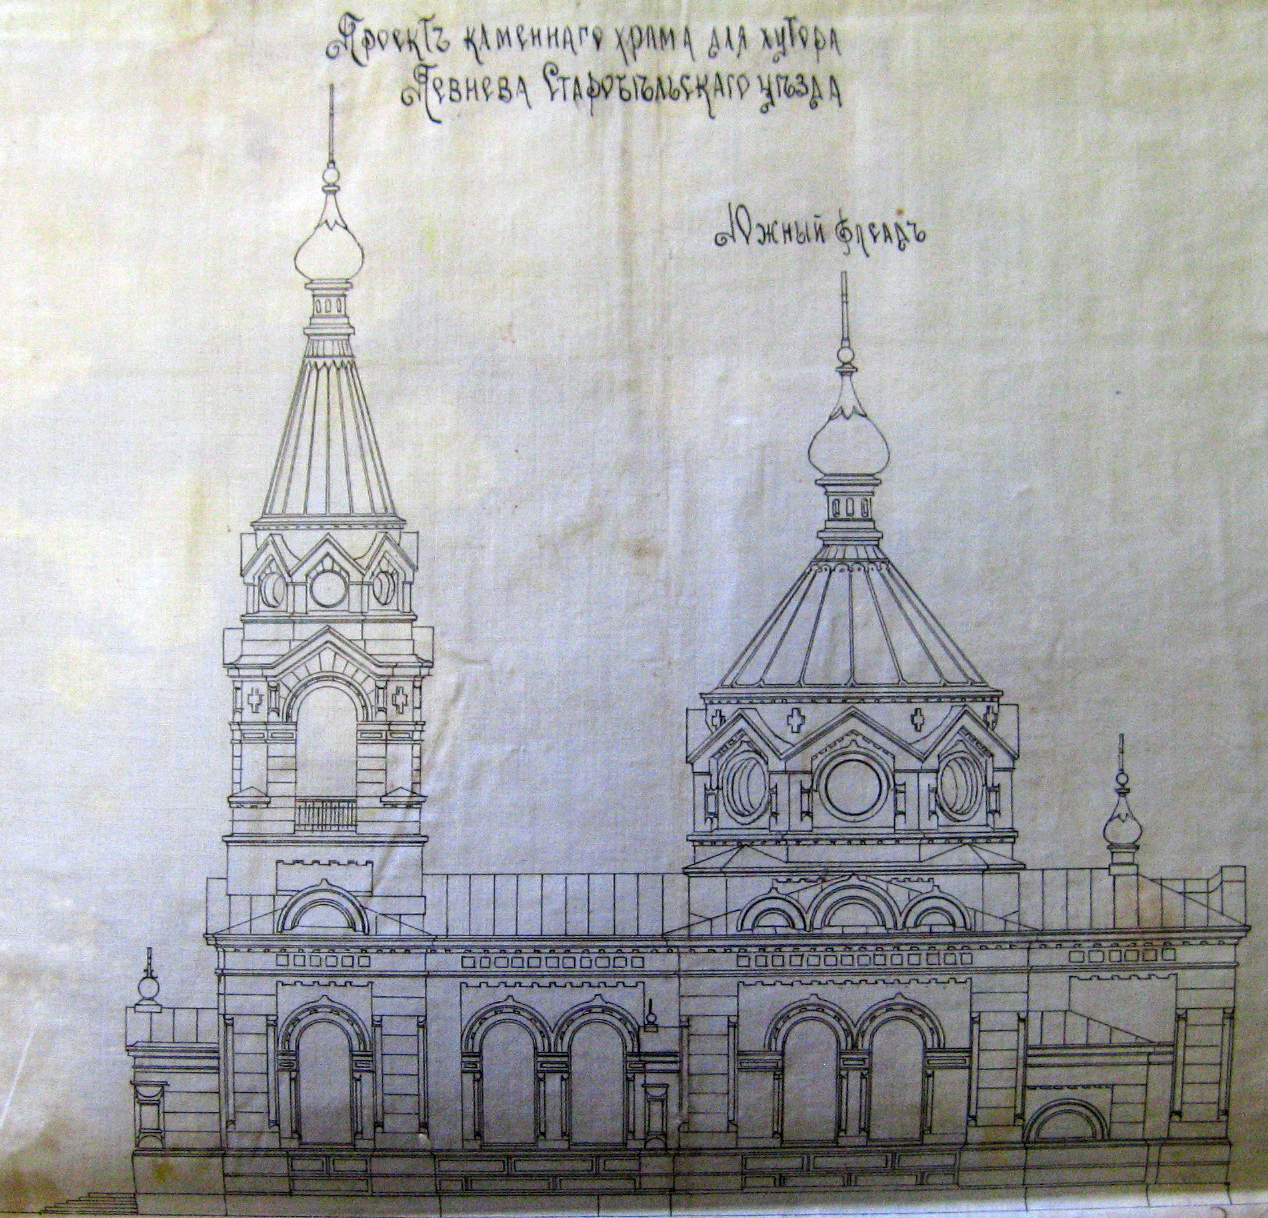 Проектъ каменнаго храма для хутора
Пѣвнева Старобѣльскаго уѣзда
Южный фасадъ